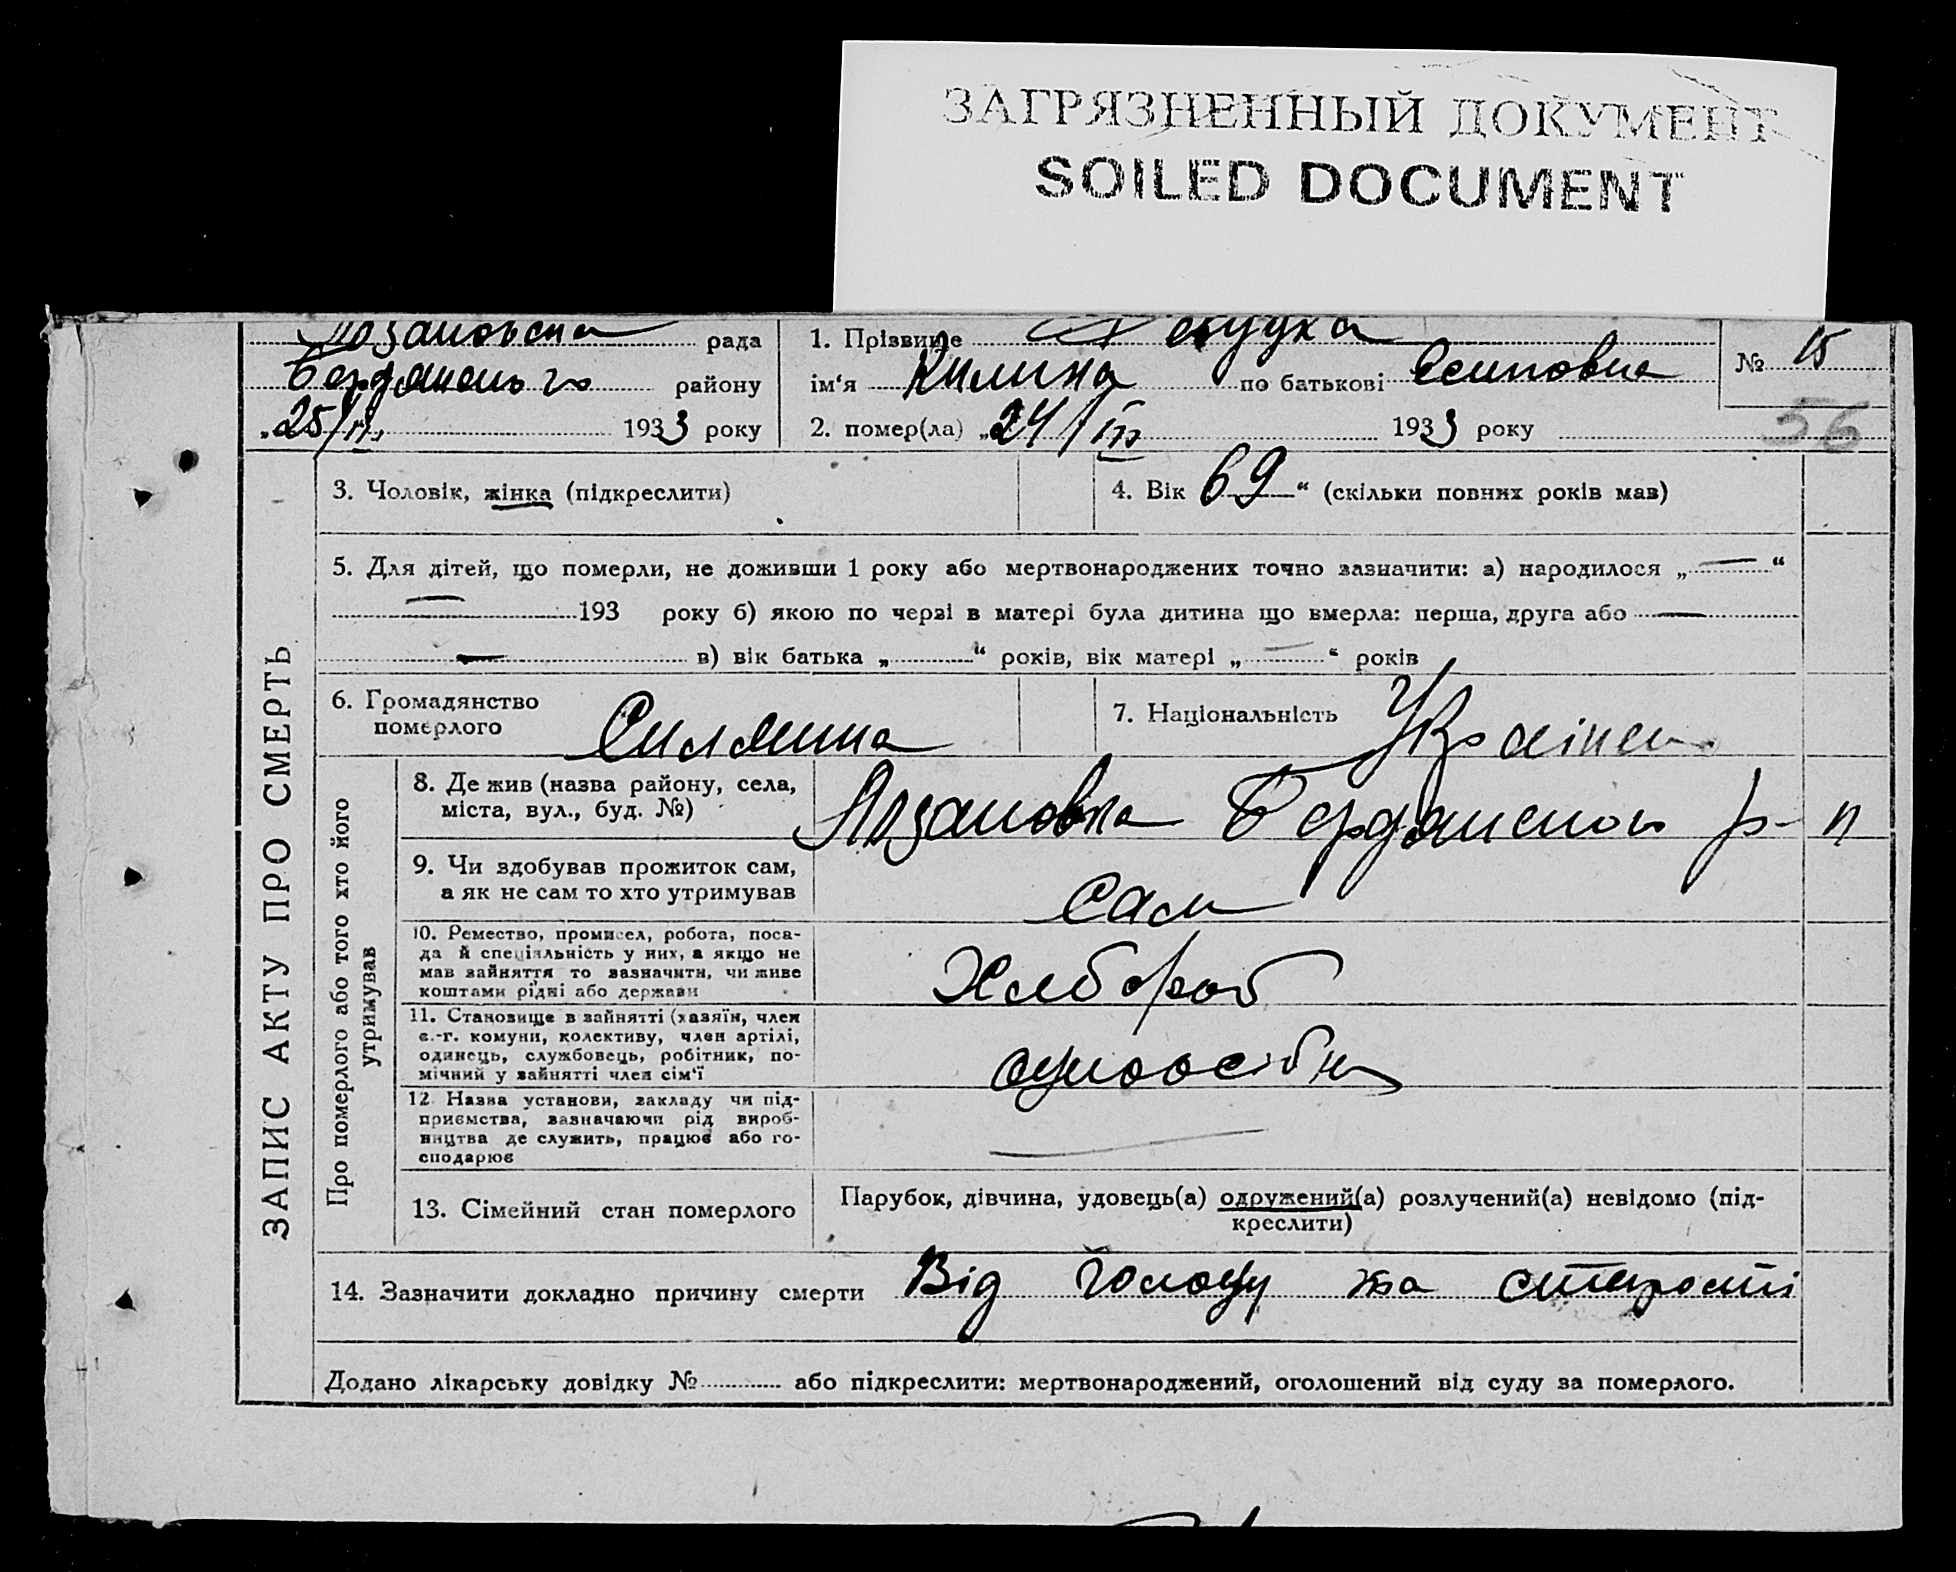 ЗАГРЯЗНЕННЫЙ ДОКУМЕНТ
SOILED DOCUMENT
рада
Берданського району
„25/III 1933 року
1. Прізвище
ім'я Килина по батькові Єсиповна
2. помер(ла) „24/III 1933 року
№ 15
56
ЗАПИС АКТУ ПРО СМЕРТЬ
3. Чоловік, жінка (підкреслити)
4. Вік 69 “ (скільки повних років мав)
5. Для дітей, що померли, не доживши 1 року або мертвонароджених точно зазначити: а) народилося „ — “
— 193 року б) якою по черзі в матері була дитина що вмерла: перша, друга або —
— в) вік батька „ “ років, вік матері „ — “ років
6. Громадянство
померлого
7. Національність
Про померлого або того хто його
утримував
8. Де жив (назва району, села,
міста, вул., буд. №)
р-н
9. Чи здобував прожиток сам,
а як не сам то хто утримував
Сам
10. Ремество, промисел, робота, поса-
да й спеціяльність у них, а якщо не
мав зайняття то зазначити, чи живе
коштами рідні або держави
Хлібороб
11. Становище в зайнятті (хазяїн, член
с.-г. комуни, колективу, член артілі,
одинець, службовець, робітник, по-
мічний у зайнятті член сім'ї
12. Назва установи, закладу чи під-
приємства, зазначаючи рід вироб-
ництва де служить, працює або го-
сподарює
—
13. Сімейний стан померлого
Парубок, дівчина, удовець(а) одружений(а) розлучений(а) невідомо (під-
креслити)
14. Зазначити докладно причину смерти Від голоду та старості
Додано лікарську довідку № або підкреслити: мертвонароджений, оголошений від суду за померлого.